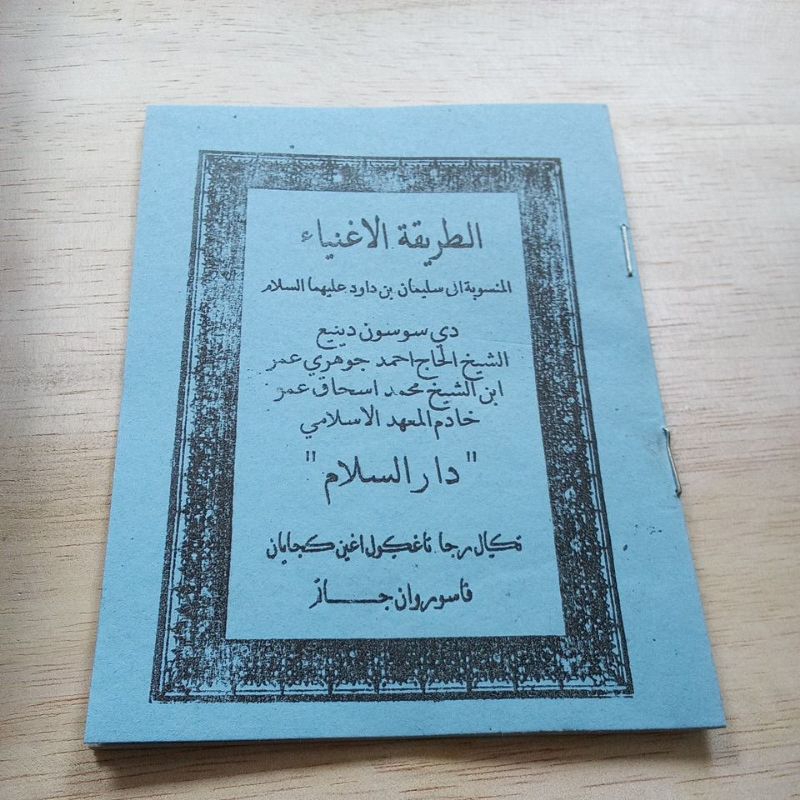 الطريقة الاغنياء
المنسوبة الى سليمان بن داود عليهما السلام
دي سوسون دينيع
الشيخ الحاج احمد جوهري عمر
ابن الشيخ محمد اسحاق عمر
خادم المعهد الاسلامي
"دار السلام"
تكيال رجا
ڤاسوروان جاتر